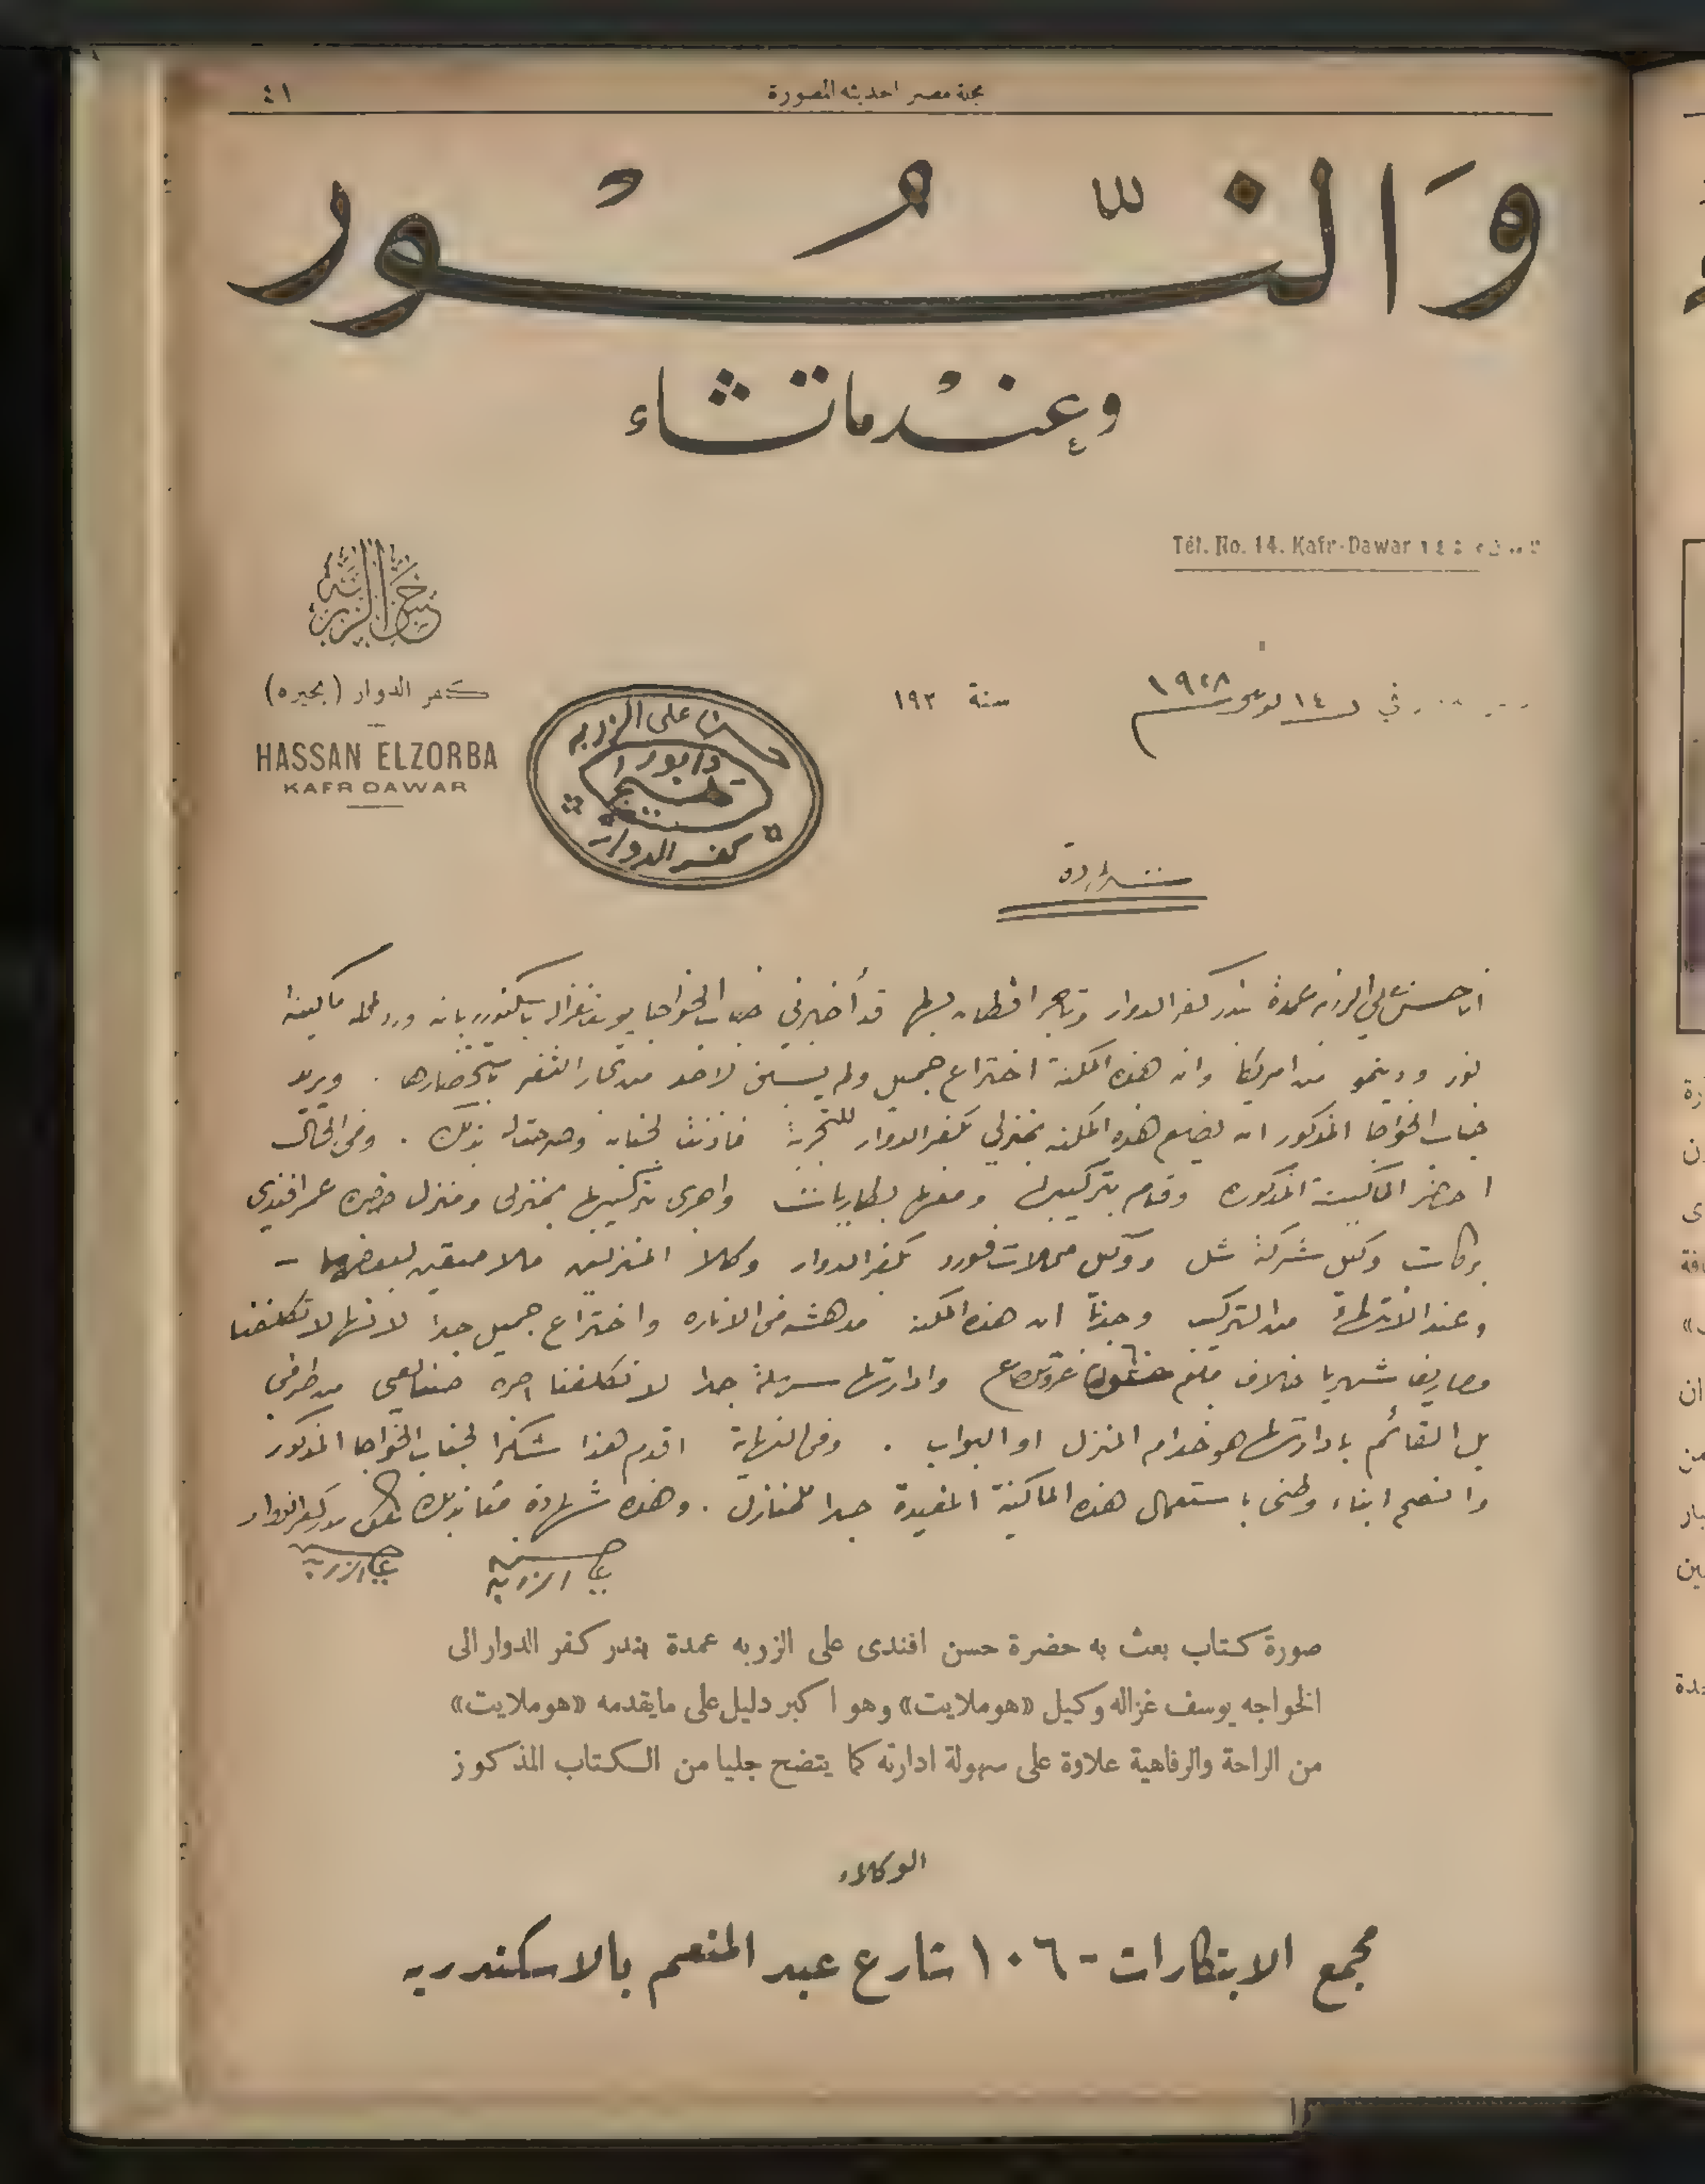 مجلة مصر الحديثة المصورة
٤١
وَالنُّور
وعِنْدما تشاء
Tél. No. 14. Kafr-Dawar ١٤
حسن الزربه
كفر الدوار (بحيره)
HASSAN ELZORBA
KAFR DAWAR
في ١٤ ١٩٢٨ سنة ١٩٢
حسن على الزربه
وابورا
كفر الدوار
شهادة
انا حسن علي الزربه عمدة بندر كفر الدوار وتاجر اقطان بها قد أخبرني جناب الخواجا يوسف غزاله باسكندريه بانه ورد له ماكينة
نور ودينمو من امريكا وان هذه المكنة اختراع جميل ولم يسبق لاحد من تجار الثغر باستحضارها . ويريد
جناب الخواجا المذكور ان يضع هذه المكنه بمنزلي بكفر الدوار للتجربة فاذنت لجنابه وصرحت له بذلك . وفى الحال
احضر الماكينة المذكوره وقام بتركيبها ومعها بطاريات واجرى تركيبها بمنزلى ومنزل حضرة عمر افندى
بركات وكيل شركة شل ووكيل محلات فورد بكفر الدوار وكلا المنزلين ملاصقين لبعضهما -
وعند الانتهاء من التركيب وجدنا ان هذه المكنه مدهشه فى الاناره واختراع جميل جدا لانها لا تكلفنا
مصاريف شهريا خلاف مبلغ غروش صاغ وادارتها سهلة جدا لا تكلفنا اجرة صنايعى من طرفى
بل القائم بادارتها هو خدام المنزل او البواب . وفى النهاية اقدم هذا شكرا لجناب الخواجا المذكور
وانصح ابناء وطنى باستعمال هذه الماكينة المفيدة جدا للمنازل . وهذه شهادة منا بذلك بندر كفر الدوار
حسن على الزربه
على الزربه
صورة كتاب بعث به حضرة حسن افندى على الزربه عمدة بندر كفر الدوار الى
الخواجه يوسف غزاله وكيل «هوملايت» وهو اكبر دليل على مايقدمه «هوملايت»
من الراحة والرفاهية علاوة على سهولة ادارته كما يتضح جليا من الكتاب المذكور
الوكلاء
مجمع الابتكارات - ١٠٦ شارع عبد المنعم بالاسكندريه